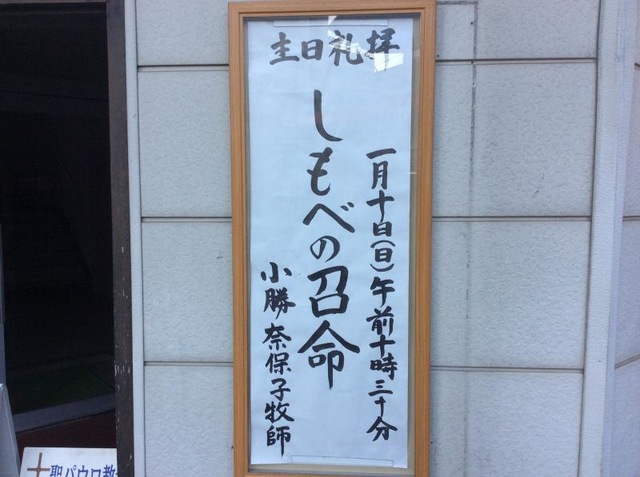 主日礼拝
一月十日(日)午前十時三十分
しもべの召命
小勝奈保子牧師
聖パウロ教